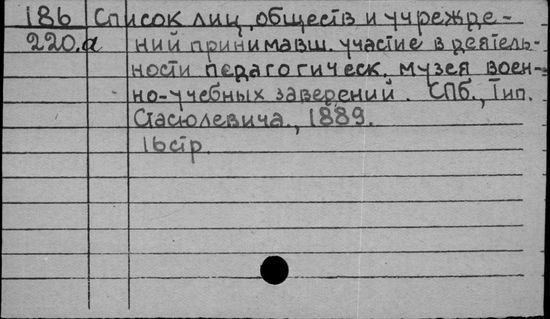 186 Список лиц, обществ и учрежде-
220.а ний принимавш. участие в деятель-
ности педагогическ. музея воен-
но-учебных заверений. СПб., Тип.
Стасюлевича., 1889.
16стр.